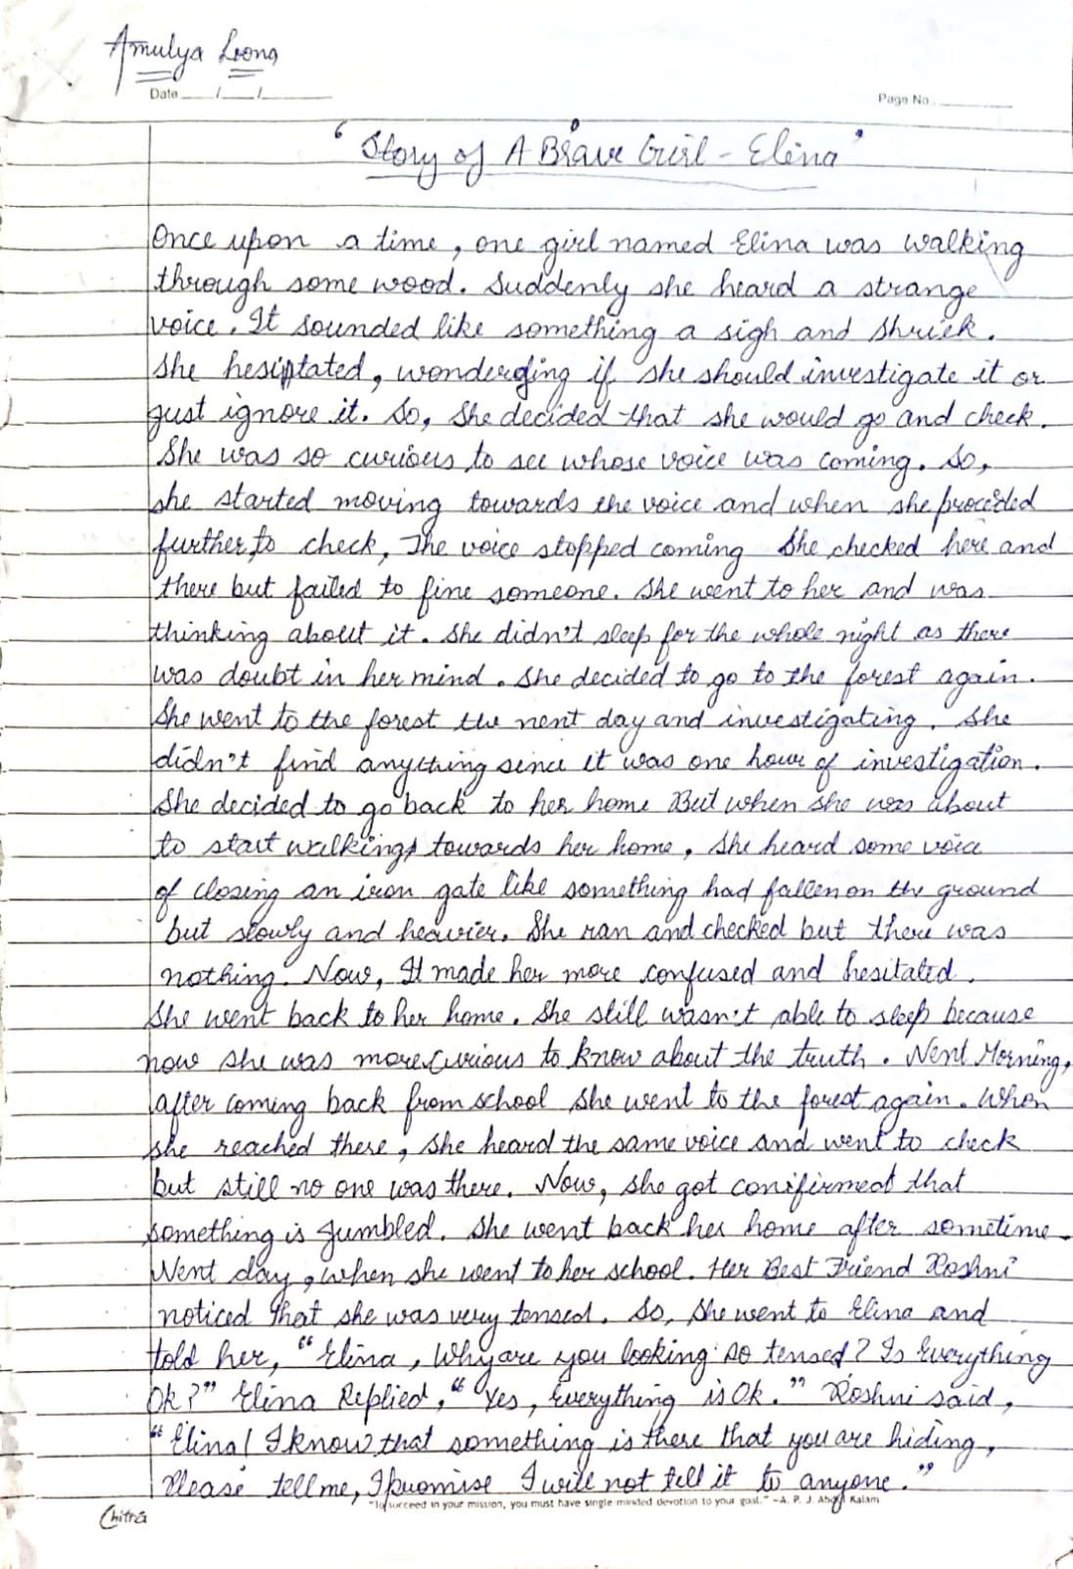 Amulya Loona
Date ___/___/___
Page No.
'Story of A Brave Girl - Elina'
Once upon a time, one girl named Elina was walking
through some wood. Suddenly she heard a strange
voice. It sounded like something a sigh and shriek.
She hesitated, wondering if she should investigate it or
just ignore it. So, She decided that she would go and check.
She was so curious to see whose voice was coming. So,
she started moving towards the voice and when she proceeded
further, to check, The voice stopped coming She checked here and
there but failed to fine someone. She went to her and was
thinking about it. She didn't sleep for the whole night as there
was doubt in her mind. She decided to go to the forest again.
She went to the forest the nent day and investigating. She
didn't find anything since it was one hour of investigation.
She decided to go back to her home But when she was about
to start walking towards her home, She heard some voice
of closing an iron gate like something had fallen on the ground
but slowly and heavier. She ran and checked but there was
nothing. Now, It made her more confused and hesitated.
She went back to her home. She still wasn't able to sleep because
now she was more curious to know about the truth. Nent Morning,
after coming back from school she went to the forest again. When
she reached there, she heard the same voice and went to check
but still no one was there. Now, she got confirmed that
something is Jumbled. She went back her home after sometime.
Nent day, when she went to her school. Her Best Friend Roshni
noticed that she was very tensed. So, She went to Elina and
told her, "Elina, Why are you looking so tensed? Is Everything
Ok?" Elina Replied, "Yes, Everything is Ok." Roshni said,
"Elina! I know that something is there that you are hiding,
Please tell me, I promise I will not tell it to anyone."
"To succeed in your mission, you must have single minded devotion to your goal." ~A. P. J. Abdul Kalam
Chitra